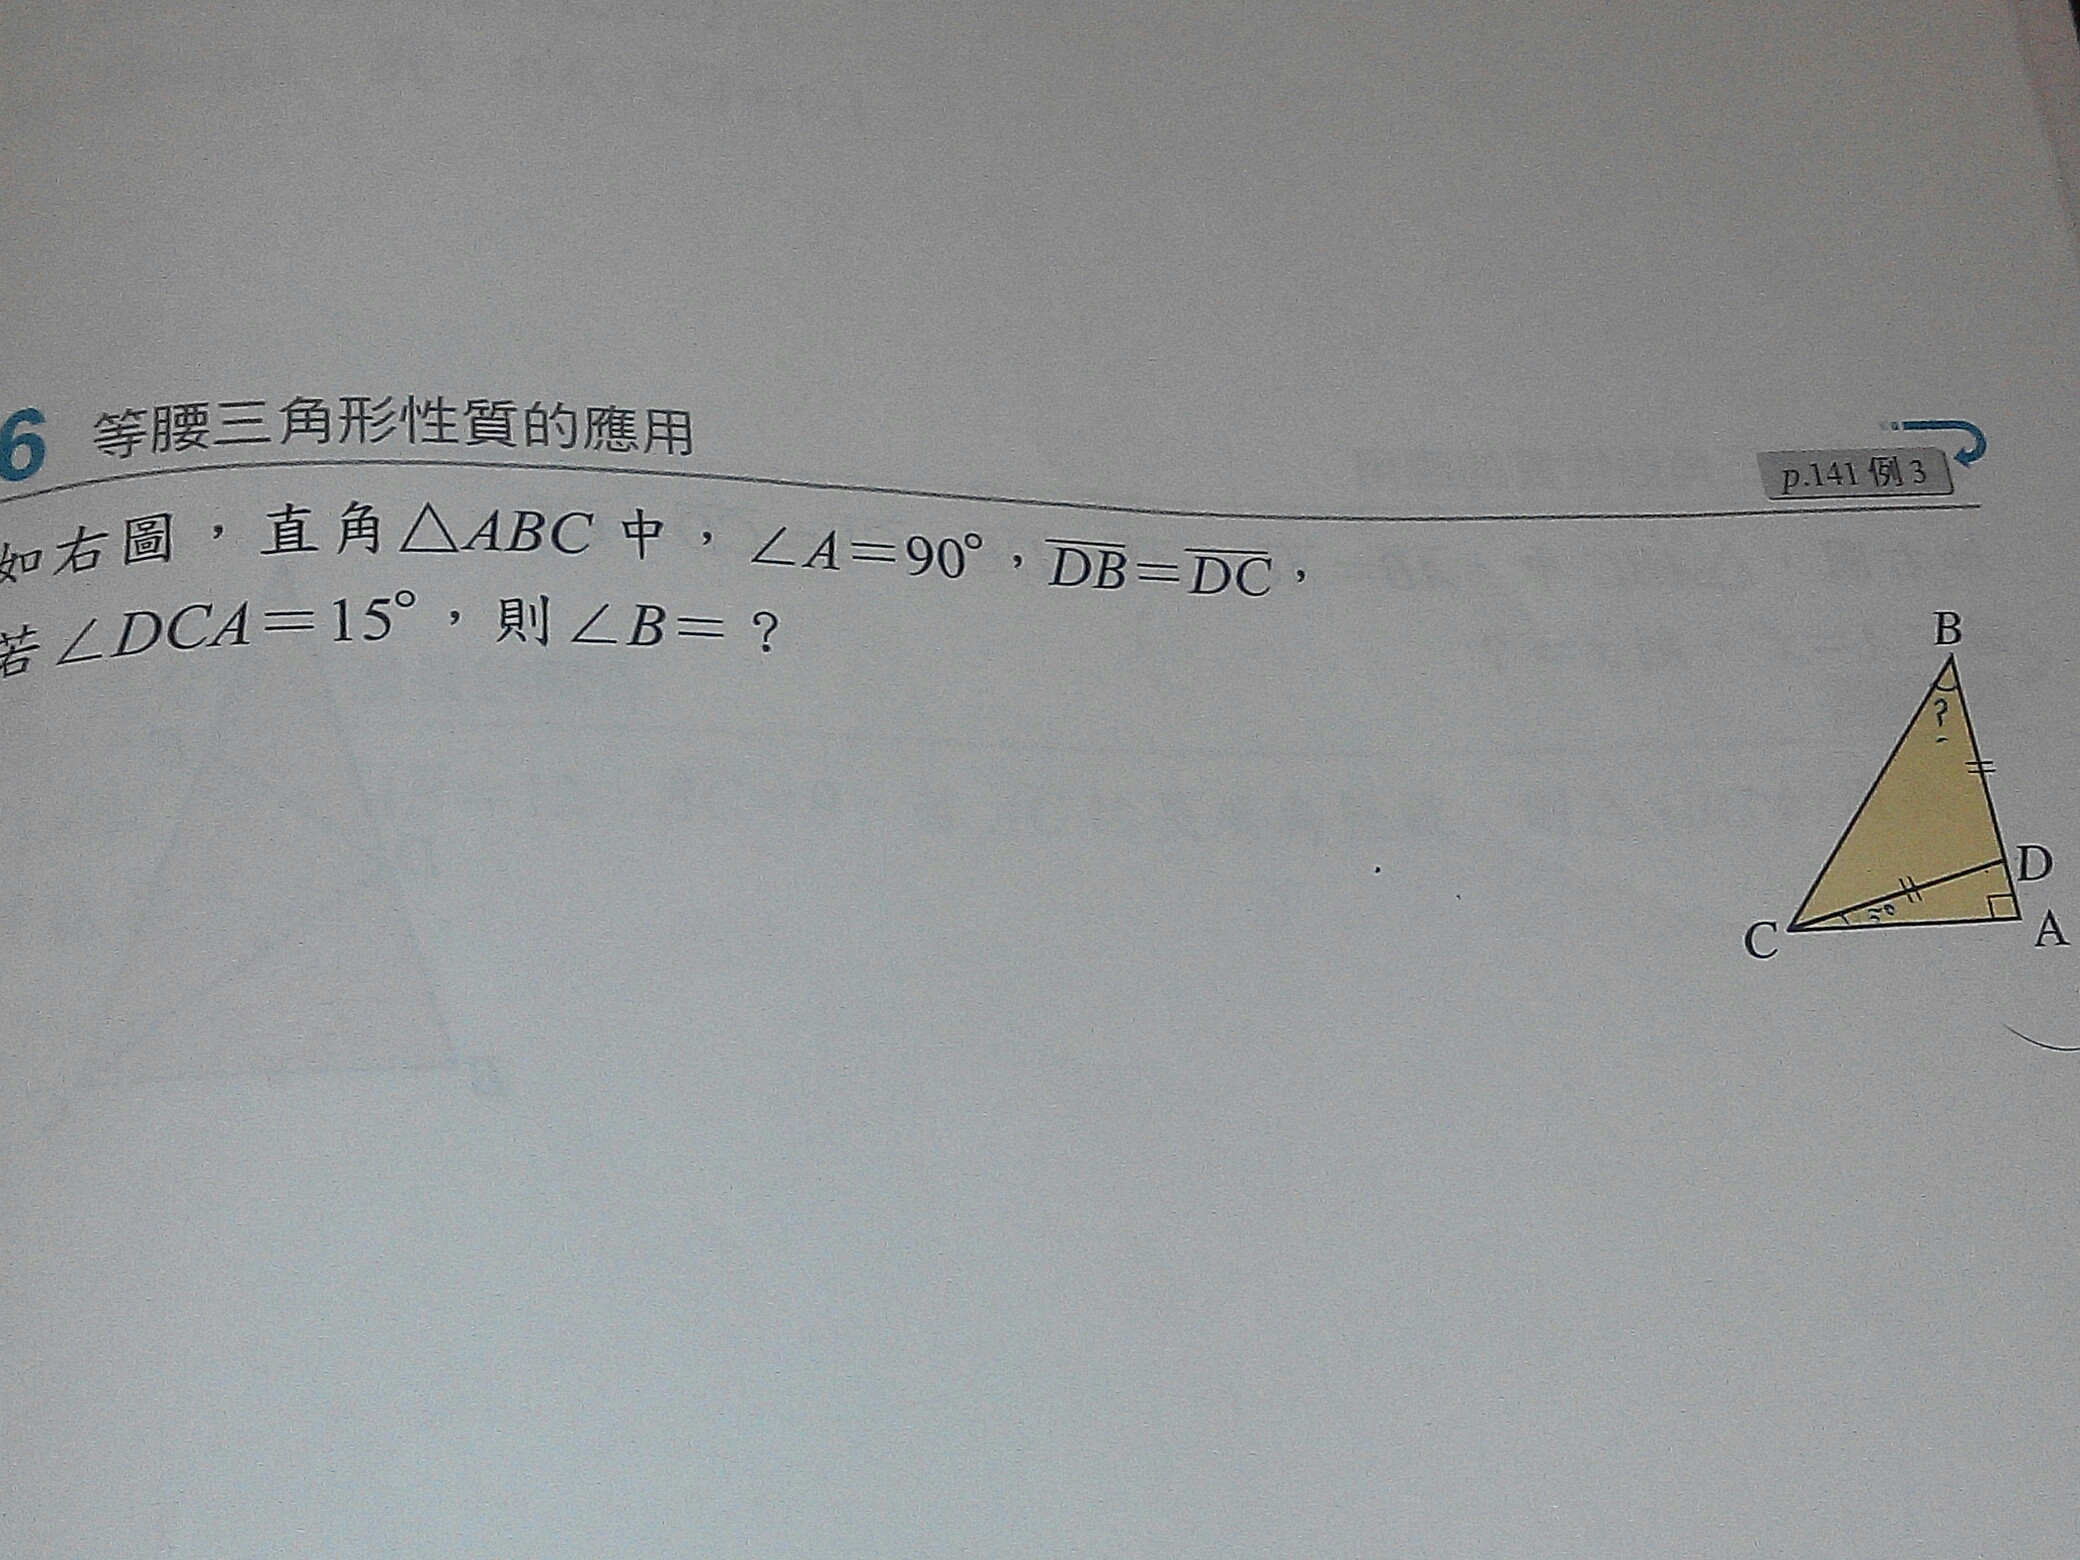 6 等腰三角形性質的應用
p.141 例 3
如右圖，直角△ABC 中，∠A＝90°，D̅B̅＝D̅C̅，
若∠DCA＝15°，則∠B＝？
B
?
D
C
A